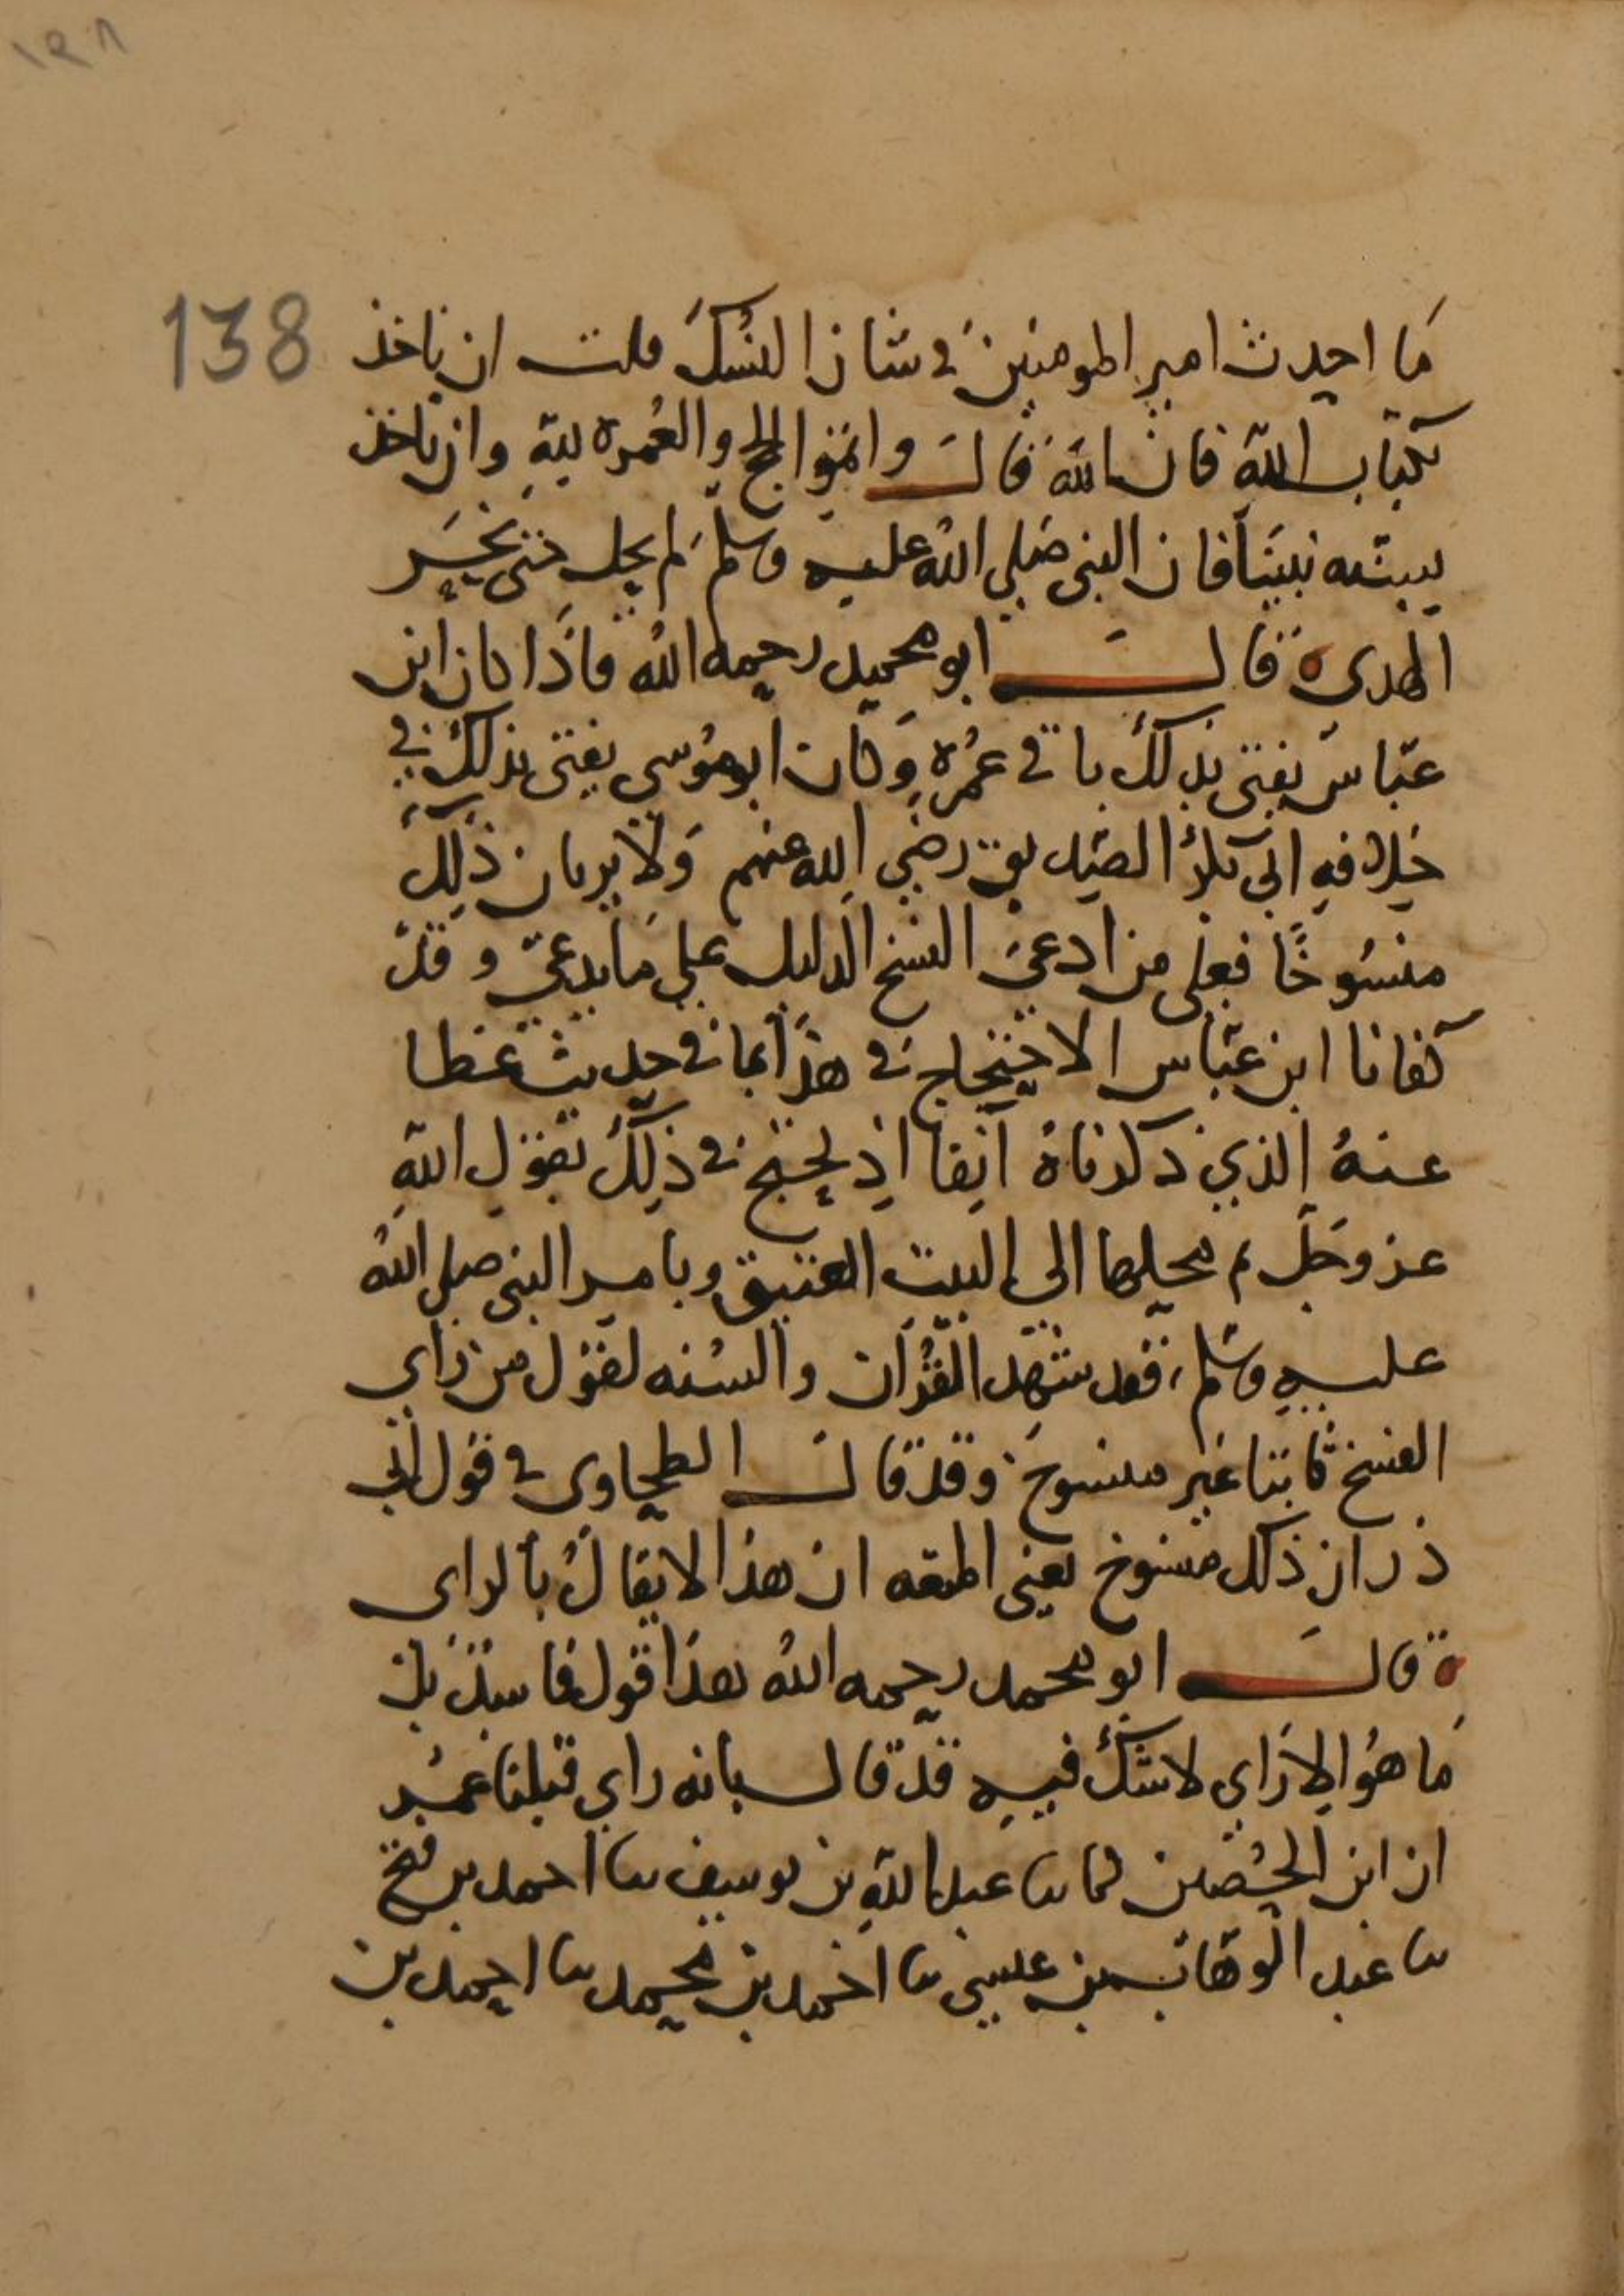 ١٣٨
138
ما احدث امير المومنين في شان النسك قلت ان ناخذ
بكتاب الله فان الله قال واتموا الحج والعمرة لله وان ناخذ
بسنه نبينا فان النبي صلى الله عليه وسلم لم يحل حتى نحر
الهدي ه قال ابو محمد رحمه الله فاذا كان ابن
عباس يفتي بذلك باقي عمره وكان ابو موسى يفتي بذلك في
خلافه ابي بكر الصديق رضي الله عنهم ولا يريان ذلك
منسوخا فعلى من ادعى النسخ الدليل على ما يدعي وقد
كفانا ابن عباس الاحتجاج في هذا بما في حديث عطا
عنه الذي ذكرناه آنفا اذ يحتج في ذلك بقول الله
عز وجل ثم محلها الى البيت العتيق وبامر النبي صلى الله
عليه وسلم فقد شهد القرآن والسنه لقول من راى
الفسخ ثابتا غير منسوخ وقد قال الطحاوي في قول ابي
ذر ان ذلك منسوخ يعني المتعه ان هذا لا يقال بالراي
ه قال ابو محمد رحمه الله هذا قول فاسد بل
ما هو الا راي لا شك فيه قد قال بانه راي قبلنا عمر
ان ابن الحصين كما ثنا عبد الله بن يوسف ثنا احمد بن فتح
ثنا عبد الوهاب بن عيسى ثنا احمد بن محمد ثنا احمد بن